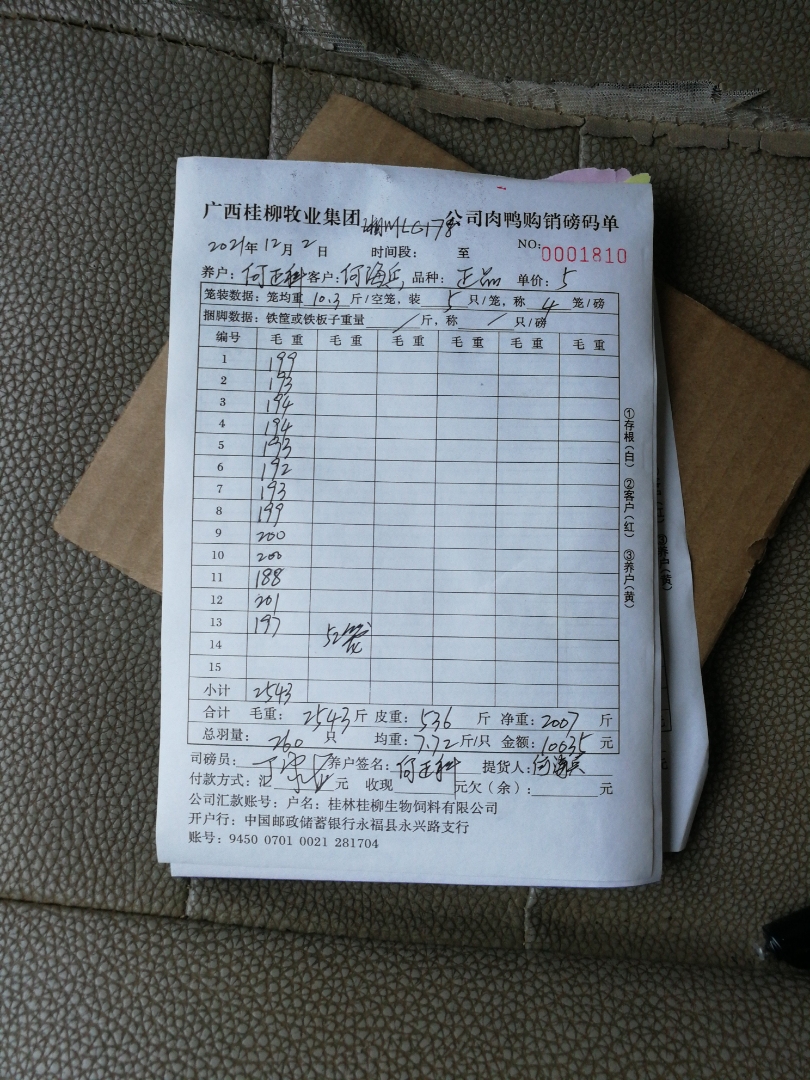 广西桂柳牧业集团 公司肉鸭购销磅码单
2021年12月2日 时间段: 至 NO: 0001810
养户: 何正科 客户: 何海兵 品种: 正品 单价: 5
笼装数据: 笼均重 10.3 斤/空笼, 装 5 只/笼, 称 4 笼/磅
捆脚数据: 铁筐或铁板子重量 / 斤, 称 / 只/磅
编号 毛重 毛重 毛重 毛重 毛重 毛重
1 199
2 193
3 194
4 194
5 193
6 192
7 193
8 199
9 200
10 200
11 188
12 201
13 197 52笼
14
15
小计 2543
合计 毛重: 2543 斤 皮重: 536 斤 净重: 2007 斤
总羽量: 260 只 均重: 7.72 斤/只 金额: 10035 元
司磅员: 养户签名: 何正科 提货人: 何海兵
付款方式: 汇 元 收现 元欠(余): 元
公司汇款账号: 户名: 桂林桂柳生物饲料有限公司
开户行: 中国邮政储蓄银行永福县永兴路支行
账号: 9450 0701 0021 281704
①存根(白) ②客户(红) ③养户(黄)
③养户(黄)